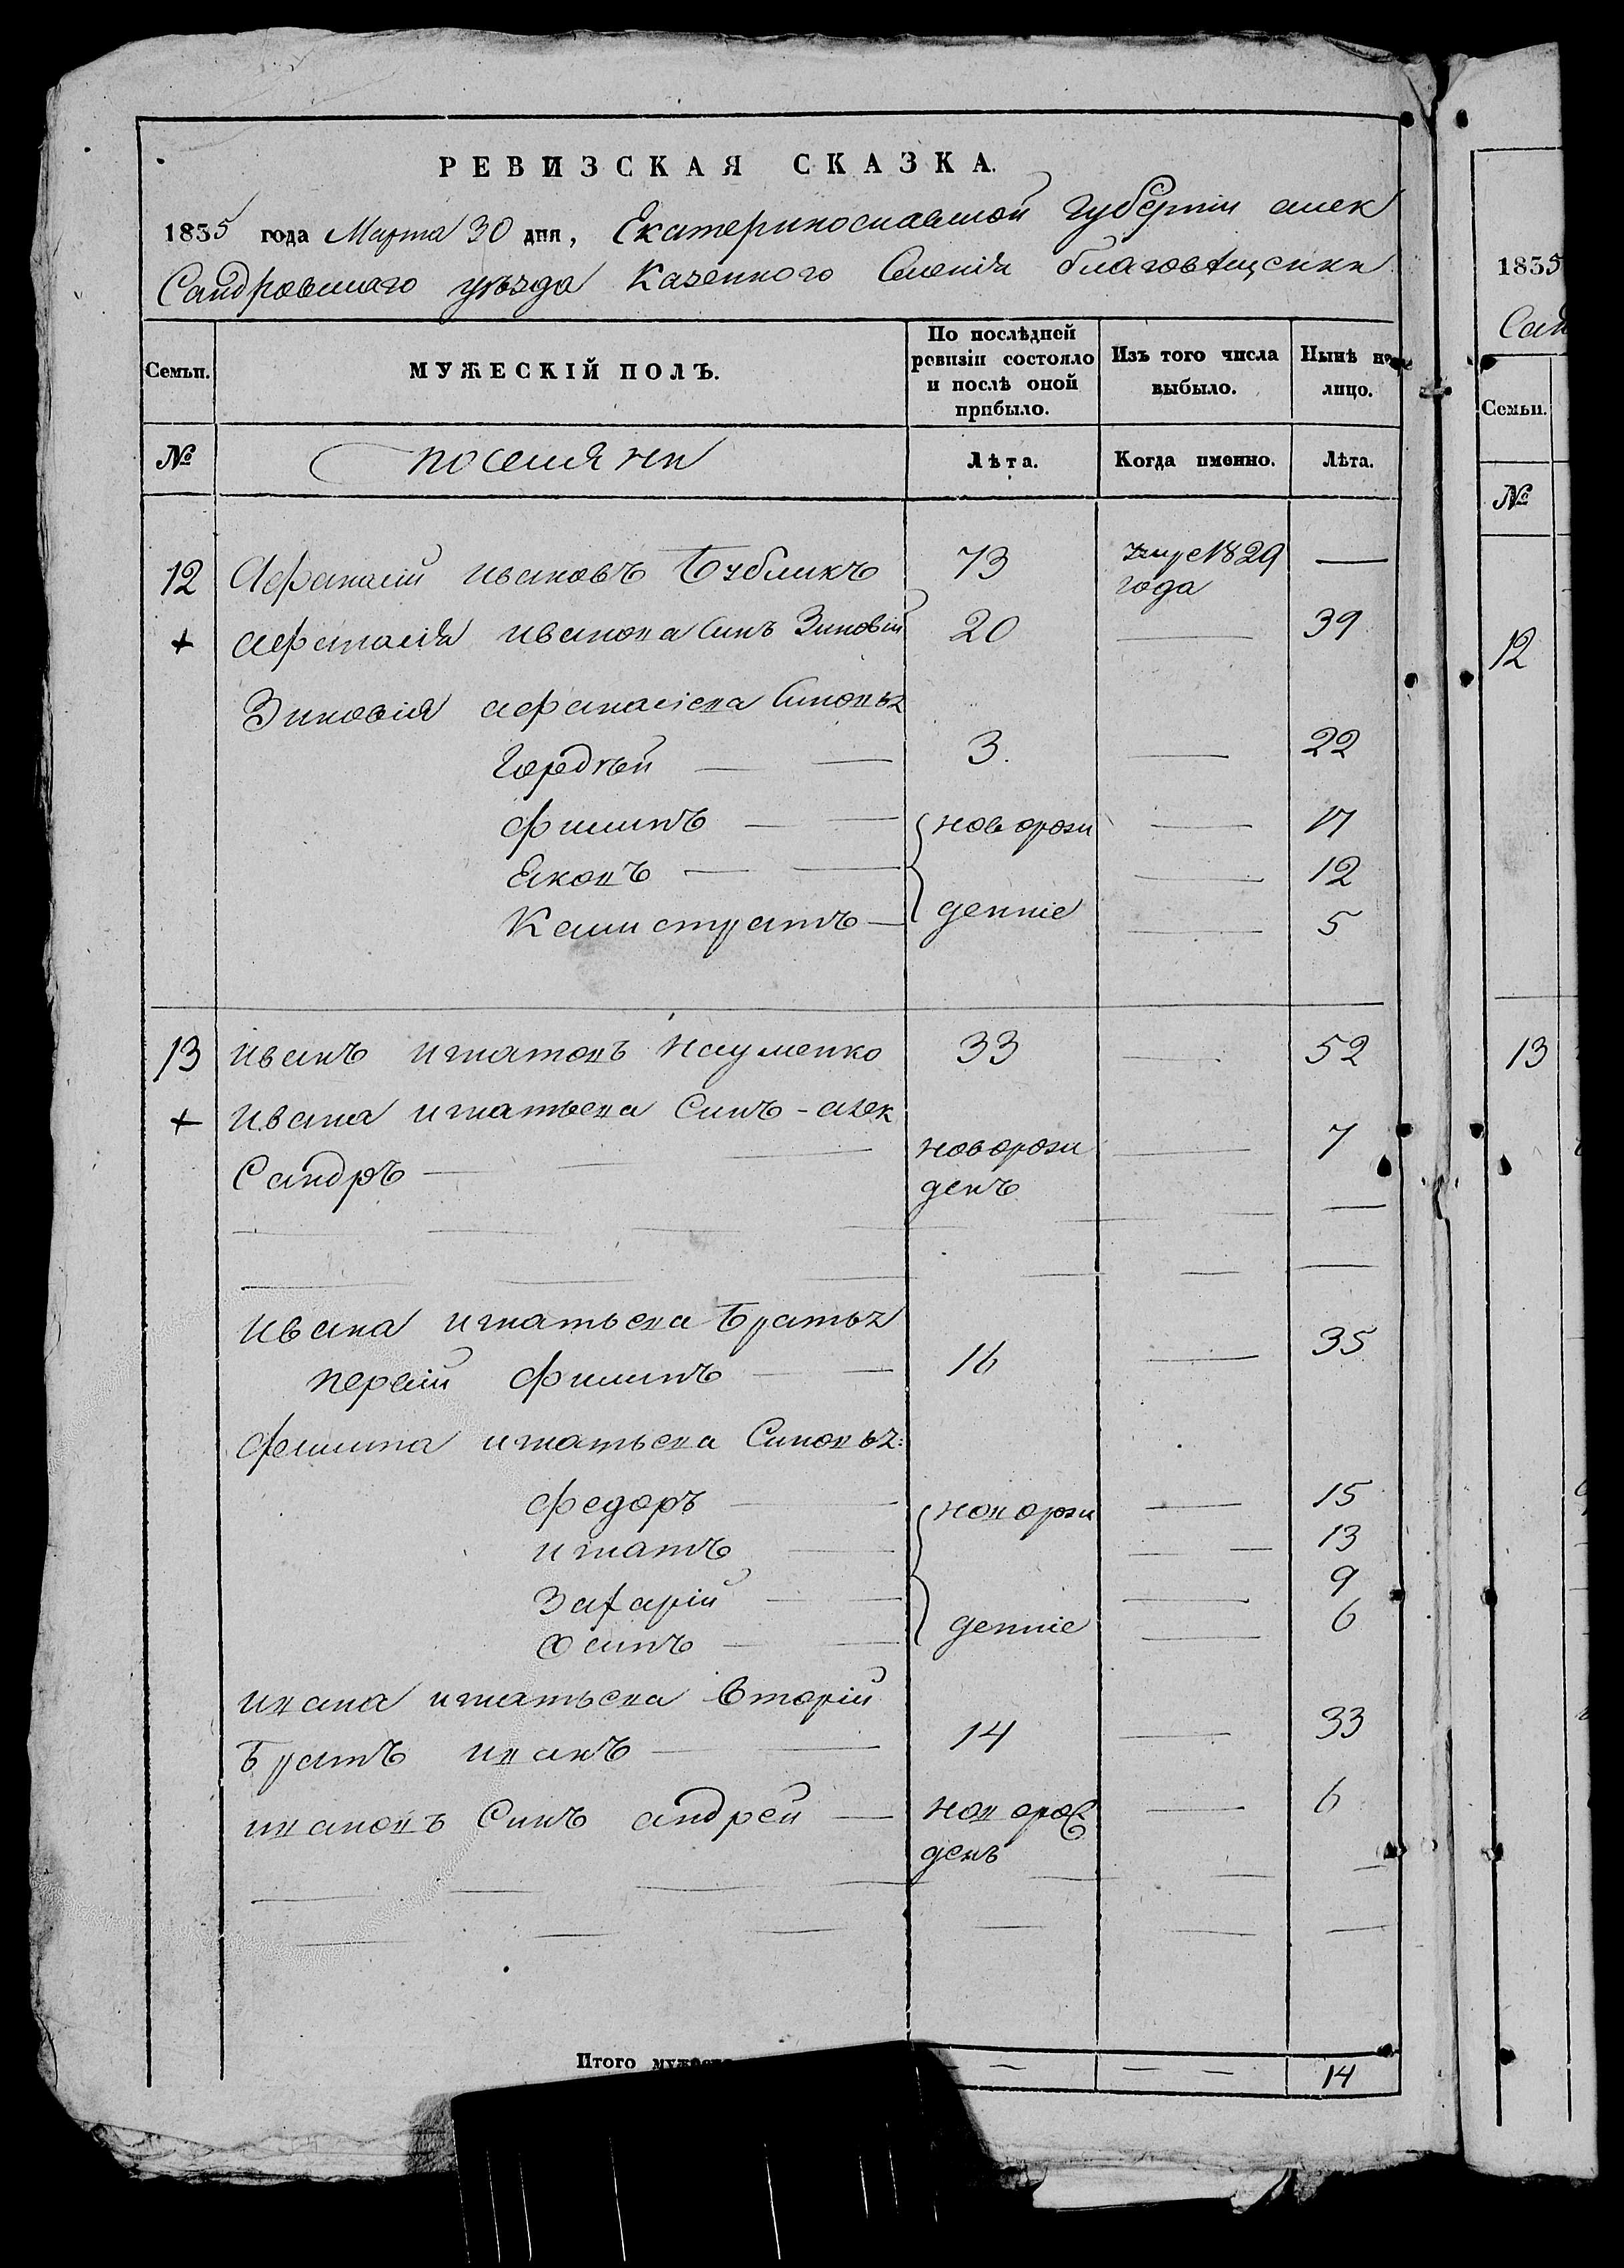 РЕВИЗСКАЯ СКАЗКА.
1835 года Марта 30 дня, Екатеринославской Губерніи алек
Сандровскаго уѣзда Казенного Селенія благовѣщенки
Семьи. МУЖЕСКІЙ ПОЛЪ. По послѣдней ревизіи состояло и послѣ оной прибыло. Изъ того числа выбыло. Нынѣ на лицо.
№ поселяне Лѣта. Когда именно. Лѣта.
12 Афанасій ивановъ Бубликъ 73 умре 1829 года —
+ афанасія иванова Синъ Зиновій 20 — 39
Зиновія афанасіева Синовьз
Гордѣй — — 3. — 22
филипъ — — новорож — 17
Яковъ — — — 12
Калистратъ — денніе — 5
13 иванъ игнатовъ Науменко 33 — 52
+ ивана игнатьева Синъ - алек
Сандръ — — — новорож денъ — 7
ивана игнатьева Братьз
первій филипъ — — 16 — 35
филипа игнатьева Синовьз:
федоръ — — новорож — 15
игнатъ — — — 13
Захарій — — — 9
осипъ — — денніе — 6
ивана игнатьева Вторій
Братъ иванъ — — 14 — 33
ивановъ Синъ андрей — новорож денъ — 6
Итого — — — — 14
1835
Сан
Семьи.
№
12
13